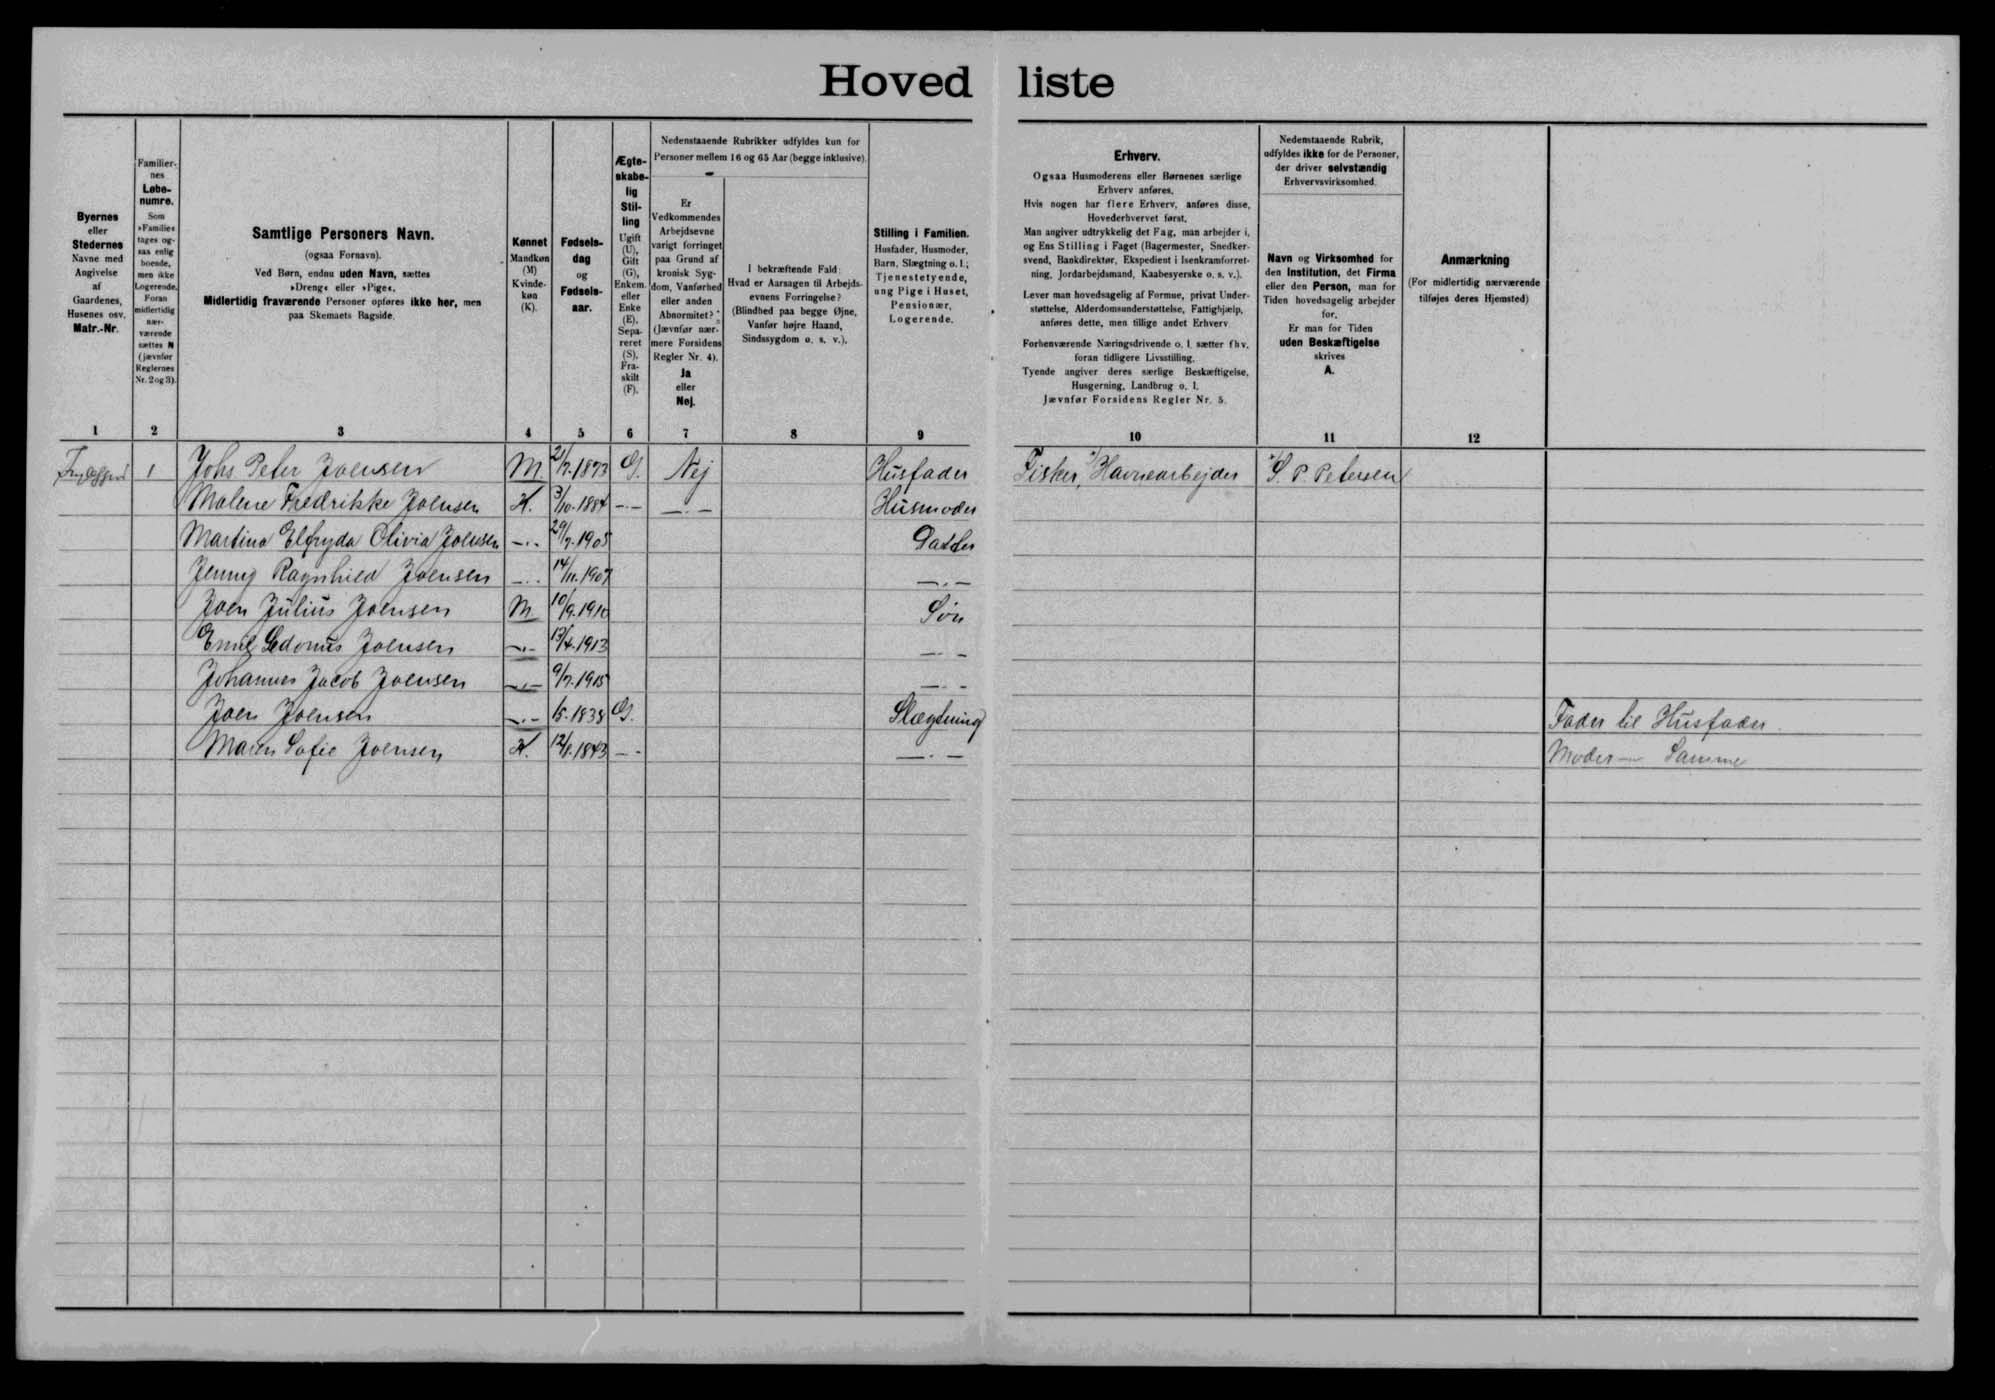 Hoved liste
Byernes
eller
Stedernes
Navne med
Angivelse
af
Gaardenes,
Husenes osv.
Matr.-Nr.
Familier-
nes
Løbe-
numre.
Som
»Familie«
tages og-
saa enlig
boende,
men ikke
Logerende.
Foran
midlertidig
nær-
værende
sættes N
(jævnfør
Reglernes
Nr. 2 og 3).
Samtlige Personers Navn.
(ogsaa Fornavn).
Ved Børn, endnu uden Navn, sættes
»Dreng« eller »Pige«.
Midlertidig fraværende Personer opføres ikke her, men
paa Skemaets Bagside.
Kønnet
Mandkøn
(M)
Kvinde-
køn
(K).
Fødsels-
dag
og
Fødsels-
aar.
Ægte-
skabe-
lig
Stil-
ling
Ugift
(U),
Gift
(G),
Enkem.
eller
Enke
(E).
Sepa-
reret
(S),
Fra-
skilt
(F).
Nedenstaaende Rubrikker udfyldes kun for
Personer mellem 16 og 65 Aar (begge inklusive).
Er
Vedkommendes
Arbejdsevne
varigt forringet
paa Grund af
kronisk Syg-
dom, Vanførhed
eller anden
Abnormitet?
(Jævnfør nær-
mere Forsidens
Regler Nr. 4).
Ja
eller
Nej.
I bekræftende Fald:
Hvad er Aarsagen til Arbejds-
evnens Forringelse?
(Blindhed paa begge Øjne,
Vanfør højre Haand,
Sindssygdom o. s. v.).
Stilling i Familien.
Husfader, Husmoder,
Barn, Slægtning o. l.;
Tjenestetyende,
ung Pige i Huset,
Pensionær,
Logerende.
Erhverv.
Ogsaa Husmoderens eller Børnenes særlige
Erhverv anføres.
Hvis nogen har flere Erhverv, anføres disse,
Hovederhvervet først.
Man angiver udtrykkelig det Fag, man arbejder i,
og Ens Stilling i Faget (Bagermester, Snedker-
svend, Bankdirektør, Ekspedient i Isenkramforret-
ning, Jordarbejdsmand, Kaabesyerske o. s. v.).
Lever man hovedsagelig af Formue, privat Under-
støttelse, Alderdomsunderstøttelse, Fattighjælp,
anføres dette, men tillige andet Erhverv
Forhenværende Næringsdrivende o. l. sætter fhv.
foran tidligere Livsstilling.
Tyende angiver deres særlige Beskæftigelse,
Husgerning, Landbrug o. l.
Jævnfør Forsidens Regler Nr. 5.
Nedenstaaende Rubrik,
udfyldes ikke for de Personer,
der driver selvstændig
Erhvervsvirksomhed.
Navn og Virksomhed for
den Institution, det Firma
eller den Person, man for
Tiden hovedsagelig arbejder
for.
Er man for Tiden
uden Beskæftigelse
skrives
A.
Anmærkning
(For midlertidig nærværende
tilføjes deres Hjemsted)
1 2 3 4 5 6 7 8 9 10 11 12
1 Johs Peter Joensen M. 21/7.1873 G. Nej Husfader Fisker, Havnearbejder S. P. Petersen
Malene Fredrikke Joensen K. 3/10.1884 -.- -.- Husmoder
Martina Elfryda Olivia Joensen -.- 29/7.1905 Datter
Jenny Ragnhild Joensen -.- 14/11.1907 -.-
Joen Julius Joensen M. 10/9.1910 Søn
Joensen -.- 13/4.1913 -.-
Johannes Jacob Joensen -.- 9/7.1915 -.-
Joen Joensen -.- 1838 G. Slægtning Fader til Husfader.
Maren Sofie Joensen K. 1843 -.- -.- Moder — Samme